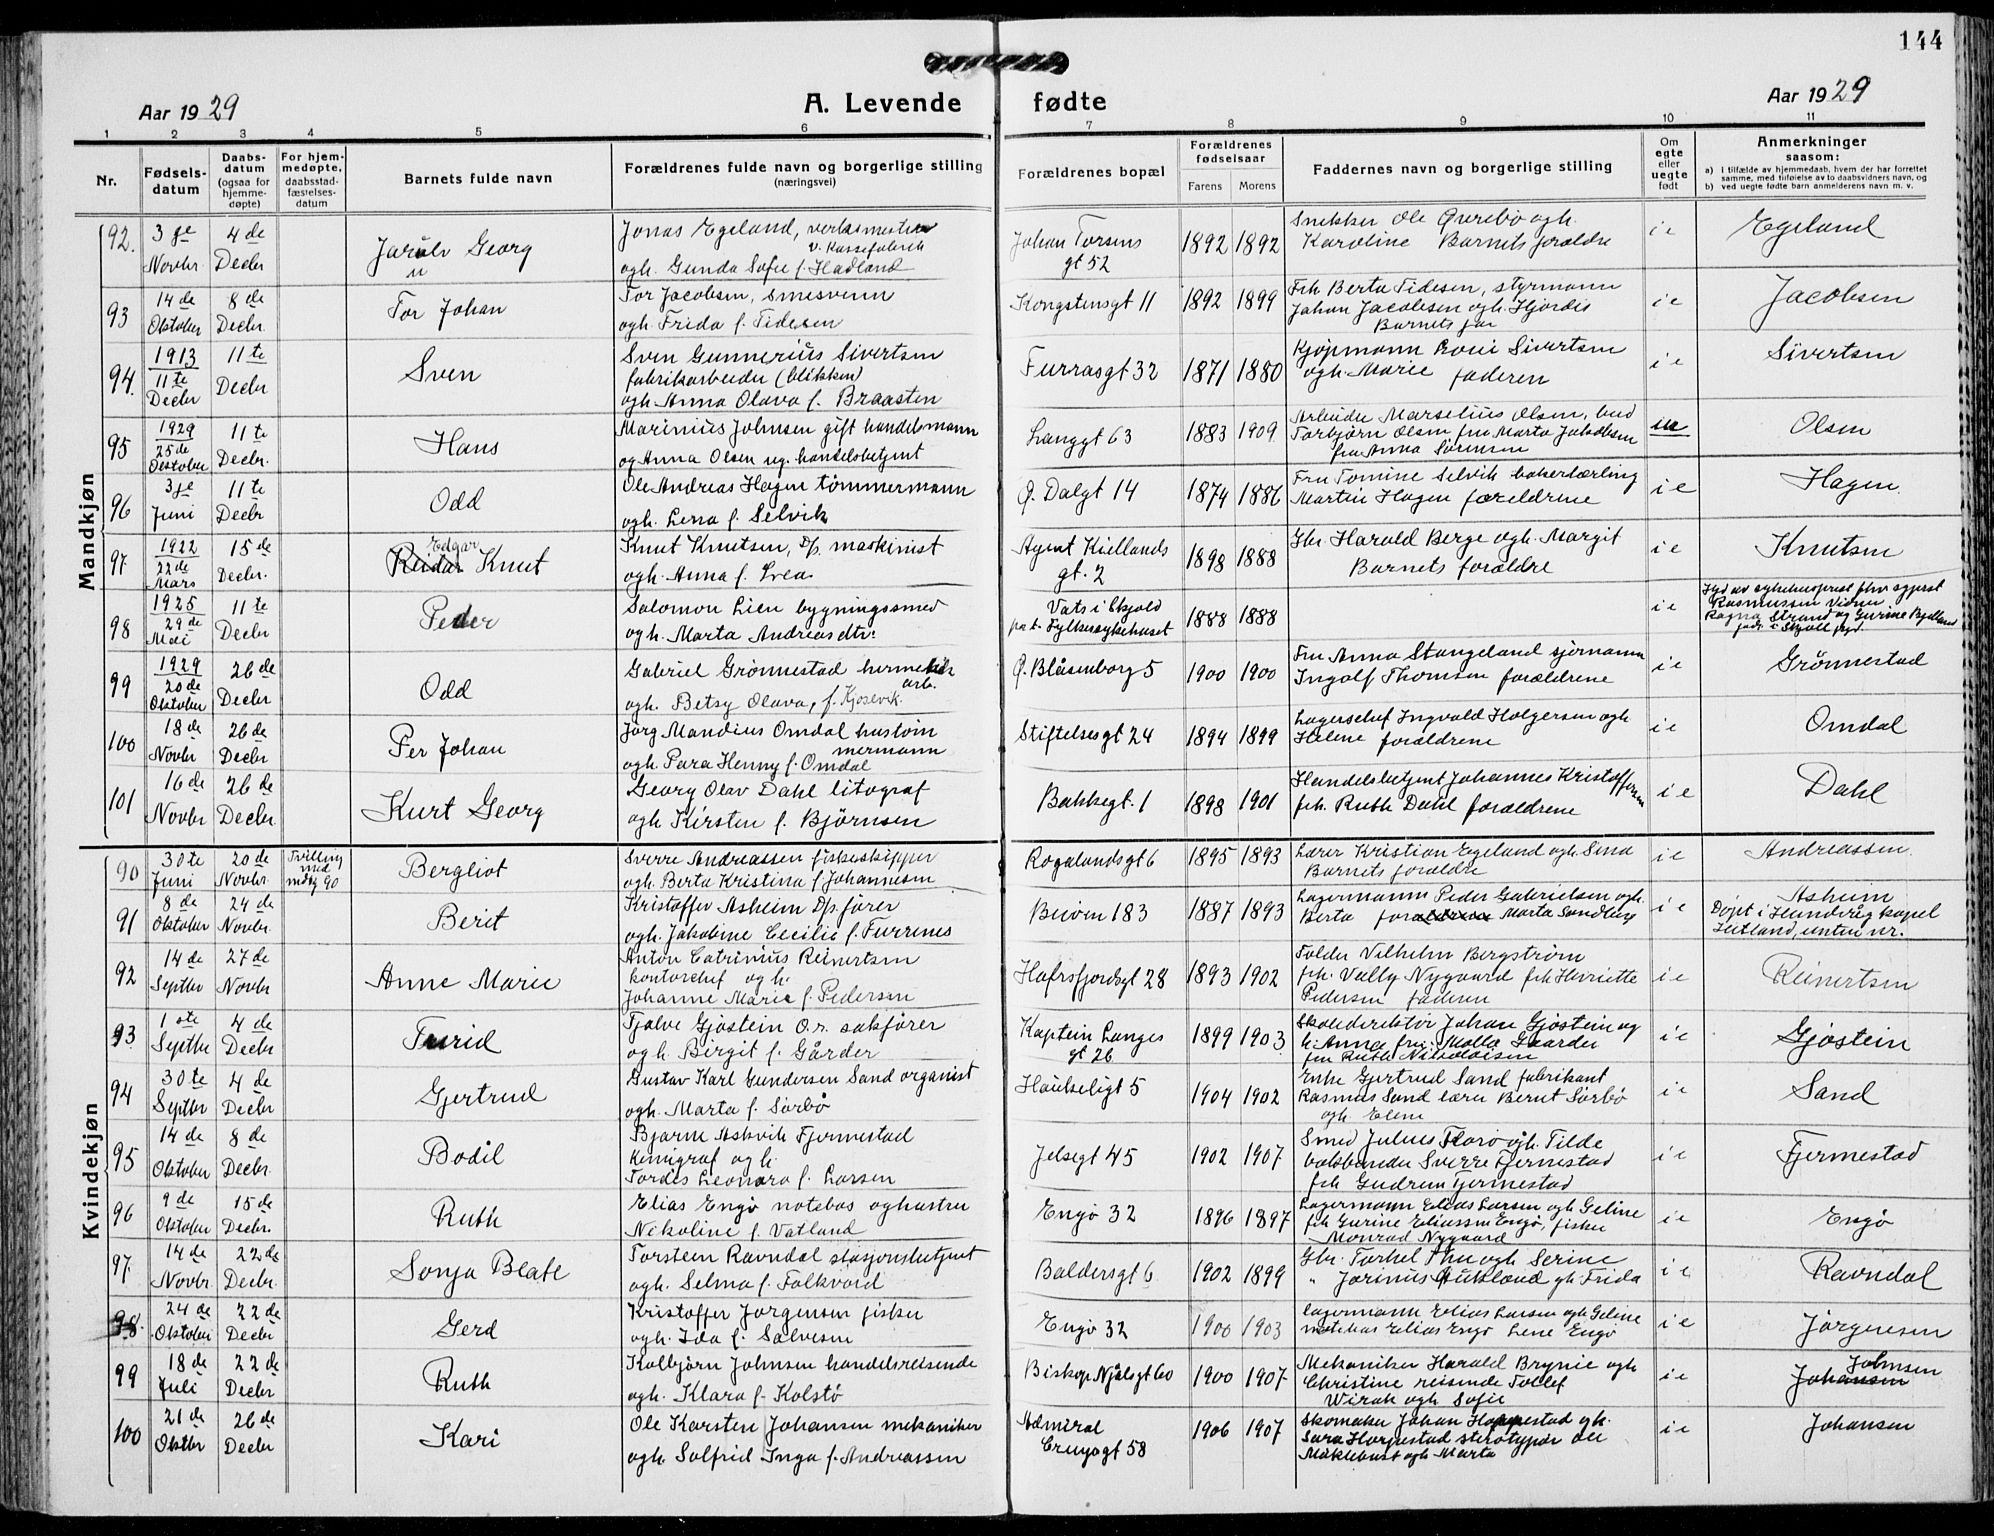 144
Aar 1929
A. Levende fødte
Aar 1929
1 2 3 4 5 6 7 8 9 10 11
Nr.
Fødsels-
datum
Daabs-
datum
(ogsaa for
hjemme-
døpte)
For hjem-
medøpte,
daabsstad-
fæstelses-
datum
Barnets fulde navn
Forældrenes fulde navn og borgerlige stilling
(næringsvei)
Forældrenes bopæl
Forældrenes
fødselsaar
Farens Morens
Faddernes navn og borgerlige stilling
Om
egte
eller
uegte
født
Anmerkninger
saasom:
a) I tilfælde av hjemmedaab, hvem der har forrettet
samme, med tilføielse av to daabsvidners navn, og
b) ved uegte fødte barn anmelderens navn m. v.
Mandkjøn
92. 3je Novbr 4de Decbr Georg
Jonas Egeland, verksmester
ogh. Gunda Sofie f. Hadland
Johan Torsens
gt 52
1892 1892
Snekker Ole Øvrebø ogh.
Karoline Barnets forældre
i e Egeland
93 14de Oktober 8de Decbr. Tor Johan
Tor Jacobsen, smesvenn
ogh. Frida f. Tidesen
Kongstensgt 11 1892 1899
Frk Berta Tidesen, styrmann
Johan Jacobsen ogh. Hjørdis
Barnets far
i e Jacobsen
94. 1913 11te Decbr 11te Decbr Sven
Sven Gunnerius Sivertsen
fabrikarbeider (blikken)
ogh. Anna Olava f. Braasten
Furrasgt 32 1871 1880
Kjøpmann Sivertsen
ogh. Marie faderen
i e Sivertsen
95 1929 25de Oktober 11te Decbr. Hans
Marinius Johnsen gift handelsmann
og Anna Olsen ug. handelsbetjent
Langgt 63 1883 1909
Arbeider Marselius Olsen, bud
Torbjørn Olsen fru Marta Jakobsen
fru Anna Sørensen
ue Olsen
96 3je Juni 11te Decbr Odd
Ole Andreas Hagen tømmermann
ogh. Lena f. Selvik
Ø. Dalgt 14 1874 1886
Fru Tomine Selvik bakerlærling
Martin Hagen forældrene
i e Hagen.
97 1922 22de Mars 15de Decbr. Edgar Reidar Knut
Knut Knutsen, D/s. maskinist
ogh. Anna f. Svea
Agent Kiellands
gt. 2
1898 1888
Hr. Harald Berge ogh. Margit
Barnets forældre
i e Knutsen
98 1925 29de Mai 11te Decbr Peder
Salomon Lien bygningssmed
ogh. Marta Andreasdtr.
Vats i Skjold
Fylkessykehuset
1888 1888
i e
99 1929 20de Oktober 26de Decbr Odd
Gabriel Grønnestad hermetikk
arb.
ogh. Betsy Olava, f. Kjosevik.
Ø. Blåsenborg 5 1900 1900
Fru Anna Stangeland sjømann
Ingolf Thomsen forældrene
i e Grønnestad
100 18de Novbr 26de Decbr Per Johan
Jørg Mandius Omdal hustøm
mermann
ogh. Para Henny f. Omdal
Stiftelsesgt 24 1894 1899
Lagerschef Ingvald Holgersen ogh
Helene forældrene
i e Omdal
101 16de Novbr 26de Decbr Kurt Georg
Georg Olav Dahl litograf
ogh. Kirsten f. Bjørnsen
Bakkegt. 1 1898 1901
Handelsbetjent Johannes Kristoffersen
frk. Ruth Dahl forældrene
i e Dahl
Kvindekjøn
90 30te Juni 20de Novbr. Tvilling
med
mdkj 90
Bergliot
Sverre Andreassen fiskeskipper
ogh. Berta Kristina f. Johannesen
Rogalandsgt 6 1895 1893
Lærer Kristian Egeland ogh. Sina
Barnets forældre
i e Andreassen.
91 8de Oktober 24de Novbr. Berit
Kristoffer Asheim D/s. fører
ogh. Jakobine Cecilie f. Furrenes
183 1887 1893
Lagermann Peder Gabrielsen ogh.
Berta forældrene Marta Sandberg
i e Asheim
Døpt i
92 14de Septbr 27de Novbr Anne Marie
Anton Catrinius Reinertsen
kontorchef ogh.
Johanne Marie f. Pedersen
Hafrsfjordsgt 28 1893 1902
Tolder Vilhelm Bergstrøm
frk. Vally Nygaard frk Henriette
Pedersen faderen
i e Reinertsen
93 1ste Septbr 4de Decbr Turid
Tjalve Gjøstein O.r. sakfører
ogh. Birgit f. Gårder
Kaptein Langes
gt 26
1899 1903
Skoledirektør Johan Gjøstein og
h. Anna fru Molla Gaarder
fru Ruth Nikolaisen
i e Gjøstein
94 30te Septbr 4de Decbr Gjertrud
Gustav Karl Gundersen Sand organist
ogh. Marta f. Sørbø
Haukeligt 5 1904 1902
Enke Gjertrud Sand fabrikant
Rasmus Sand lærer Bernt Sørbø
ogh Elen
i e Sand
95 14de Oktober 8de Decbr. Bodil
Bjarne Askvik Fjermestad
Kemigraf ogh.
Tordes Leonora f. Larsen
Jelsegt 45 1902 1907
Smed Julius Florø ogh. Tilde
Sverre Fjermestad
frk Gudrun Fjermestad
i e Fjermestad
96 9de Oktober 15de Decbr. Ruth
Elias Engø notebas oghustru
Nikoline f. Vatland
Engø 32 1896 1897
Lagermann Elias Larsen ogh Geline
frk Gurine Eliassen Engø, fisker
Monrad Nygaard
i e Engø
97 14de Novbr. 22de Decbr. Sonja Beate
Torstein Ravndal stasjonsbetjent
ogh. Selma f. Folkvord
Baldersgt 6 1902 1899
Hr. Torkel Thu ogh Serine
" Jorinus Aukland gh Frida
i e Ravndal
98. 24de Oktober 22de Decbr Gerd
Kristoffer Jørgensen fisker
ogh. Ida f. Salvesen
Engø 32 1900 1903
Lagermann Elias Larsen ogh Geline
notebas Elias Engø Lene Engø
i e Jørgensen
99 18de Juli 22de Decbr Ruth
Kolbjørn Johnsen handelsreisende
ogh. Klara f. Kolstø
Biskop Njålsgt 60 1900 1907
Mekaniker Harald Brynie ogh
Christine reisende Tollef
Wirak ogh Sofie
i e Johnsen
Johansen
100 21de Oktbr 26de Decbr Kari
Ole Karsten Johansen mekaniker
ogh. Solfrid Inga f. Andreassen
Admiral
Cruysgt 58
1906 1907
Skomaker Johan Hoppestad gh.
Sara Horpestad sterotypør Ole
Måklebust ogh Marta
i e Johansen